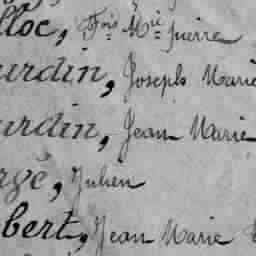 lloc, Fois Mie pierre
urdin, Joseph Marie
urdin, Jean Marie
rgé, Julien
bert, Jean Marie